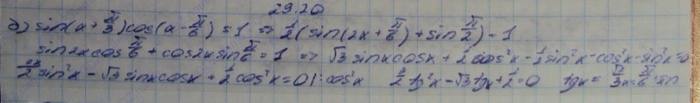 29.20
б) sin(x+π/3)cos(x-π/6)=1 => 1/2(sin(2x+π/6)+sin π/2)=1
sin2x cos π/6 + cos2x sin π/6 = 1 => √3 sinx cosx + 1/2 cos²x - 1/2 sin²x - cos²x - sin²x = 0
3/2 sin²x - √3 sinx cosx + 1/2 cos²x = 0 |: cos²x 3/2 tg²x - √3 tgx + 1/2 = 0 tgx =